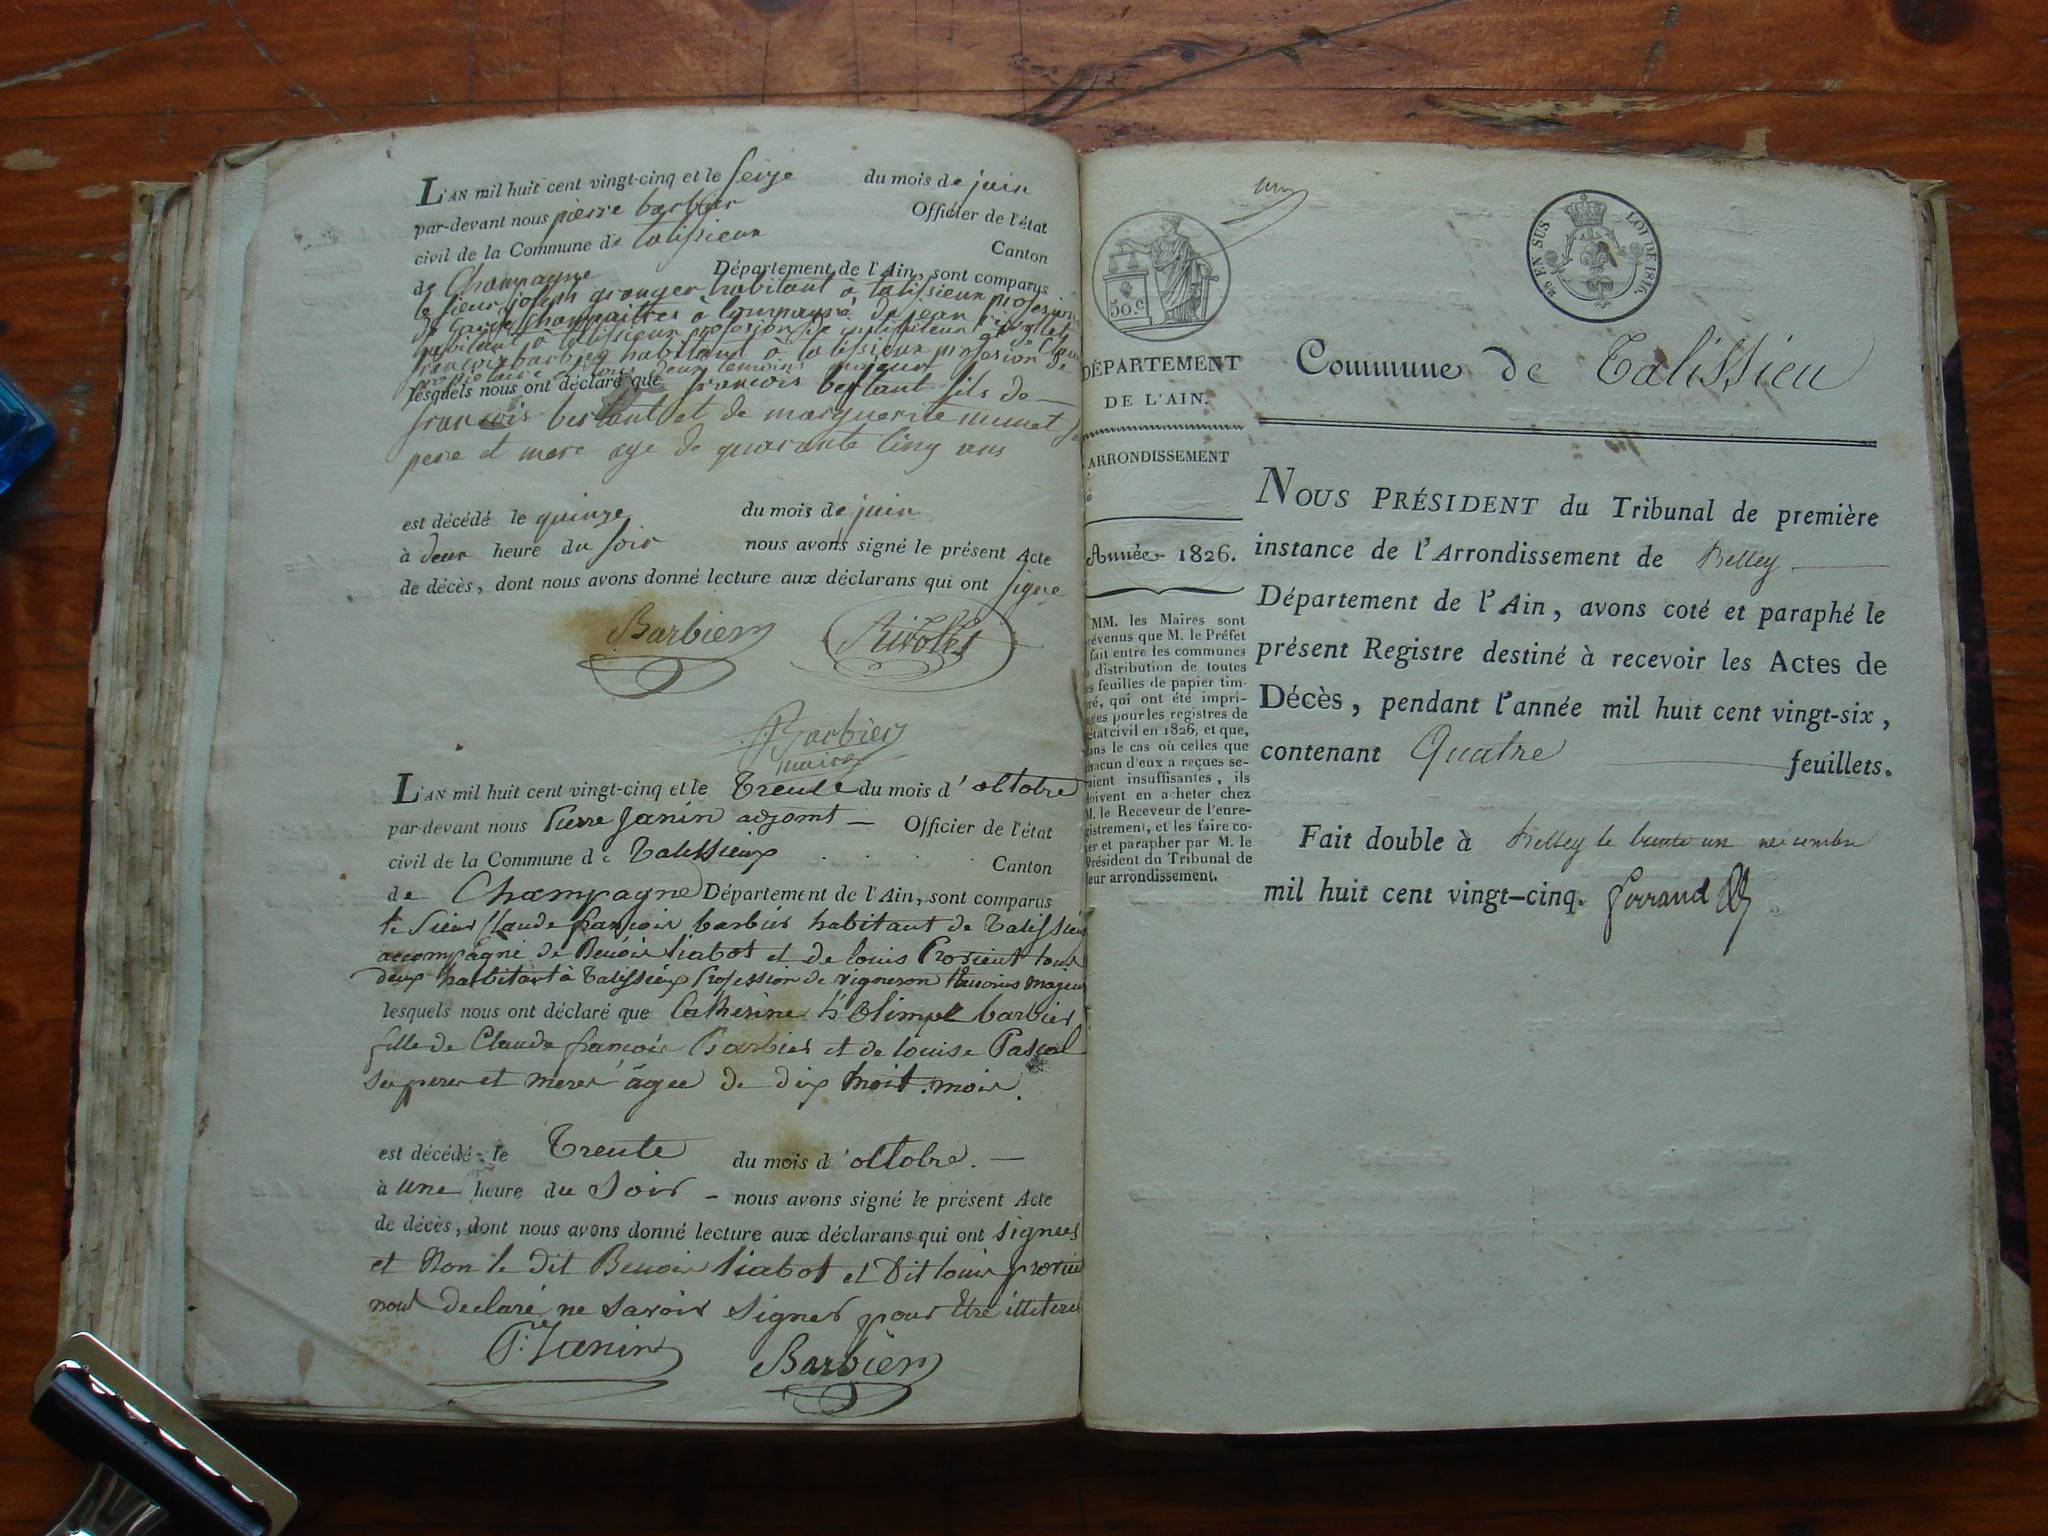 L'AN mil huit cent vingt-cinq et le seize du mois de juin
par-devant nous pierre barbier Officier de l'état
civil de la Commune de talissieux Canton
de Champagne Département de l'Ain, sont comparus
le sieur joseph granger habitant à talissieux profession
habitant à talissieux profession de
françois barbier habitant à talissieux profession de
lesquels nous ont déclaré que françois bertant fils de
françois bertant et de marguerite
pere et mere age de quarante cinq ans
est décédé le quinze du mois de juin
à deux heure du soir nous avons signé le présent Acte
de décès, dont nous avons donné lecture aux déclarans qui ont signe
Barbier Rivolet
Barbier
maire
L'AN mil huit cent vingt-cinq et le Trente du mois d'octobre
par-devant nous Pierre Janin adjoint Officier de l'état
civil de la Commune de Talissieux Canton
de Champagne Département de l'Ain, sont comparus
le Sieur Claude françois barbier habitant de Talissieu
accompagné de Benoir liabot et de louis tous
deux habitant à Talissieux Profession de vigneron témoins majeur
lesquels nous ont déclaré que Catherine barbier
fille de Claude françois Barbier et de louise Pascal
ses peres et meres âgée de dix huit mois.
est décédé le Trente du mois d'octobre.
à une heure du Soir - nous avons signé le présent Acte
de décès, dont nous avons donné lecture aux déclarans qui ont signees
et Non le dit Benoir liabot et Dit louis
nous declaré ne savoir signer pour Etre
P.re Janin Barbier
50. c
EN SUS LOI DE 1816.
DÉPARTEMENT
DE L'AIN.
ARRONDISSEMENT
Année 1826.
MM. les Maires sont
révenus que M. le Préfet
fait entre les communes
distribution de toutes
s feuilles de papier tim-
ré, qui ont été impri-
ées pour les registres de
état civil en 1826, et que,
ans le cas où celles que
hacun d'eux a reçues se-
aient insuffisantes, ils
doivent en a heter chez
M. le Receveur de l'enre-
gistrement, et les faire co-
er et parapher par M. le
Président du Tribunal de
leur arrondissement.
Commune de Talissieu
NOUS PRÉSIDENT du Tribunal de première
instance de l'Arrondissement de Belley
Département de l'Ain, avons coté et paraphé le
présent Registre destiné à recevoir les Actes de
Décès, pendant l'année mil huit cent vingt-six,
contenant Quatre feuillets.
Fait double à Belley le trente un décembre
mil huit cent vingt-cinq. ferrand